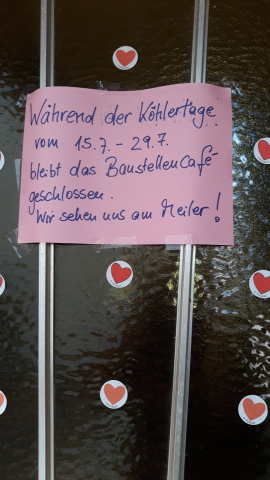 Während der Köhlertage
vom 15.7. - 29.7.
bleibt das BaustellenCafé
geschlossen.
Wir sehen uns am Meiler!